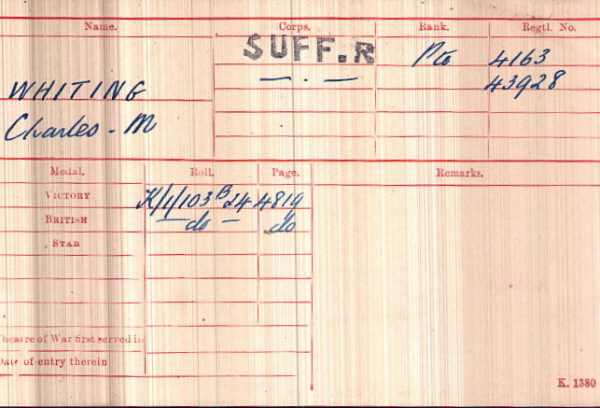 Name. Corps. Rank. Regtl. No.
SUFF.R Pte 4163
— . — 43928
WHITING
Charles - M
Medal. Roll. Page. Remarks.
VICTORY K/1/103 B 24 4819
BRITISH — do — do
STAR
Theatre of War first served in
Date of entry therein
K. 1380